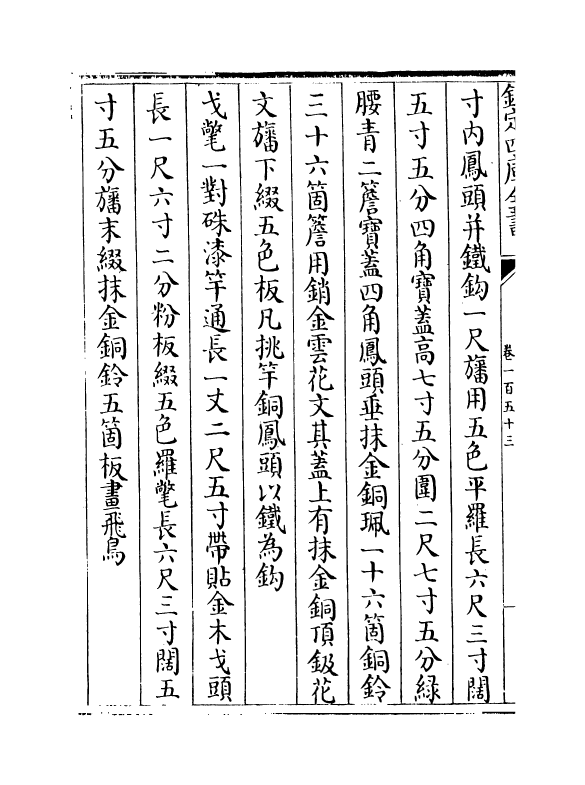 欽定四庫全書
卷一百五十三
寸内鳳頭并鐵鈎一尺旛用五色平羅長六尺三寸闊
五寸五分四角寶蓋高七寸五分圍二尺七寸五分緑
腰青二簷寶蓋四角鳳頭垂抹金銅珮一十六箇銅鈴
三十六箇簷用銷金雲花文其蓋上有抹金銅頂鈒花
文旛下綴五色板凡挑竿銅鳳頭以鐵為鈎
戈氅一對硃漆竿通長一丈二尺五寸帶貼金木戈頭
長一尺六寸二分粉板綴五色羅氅長六尺三寸闊五
寸五分旛末綴抹金銅鈴五箇板畫飛鳥